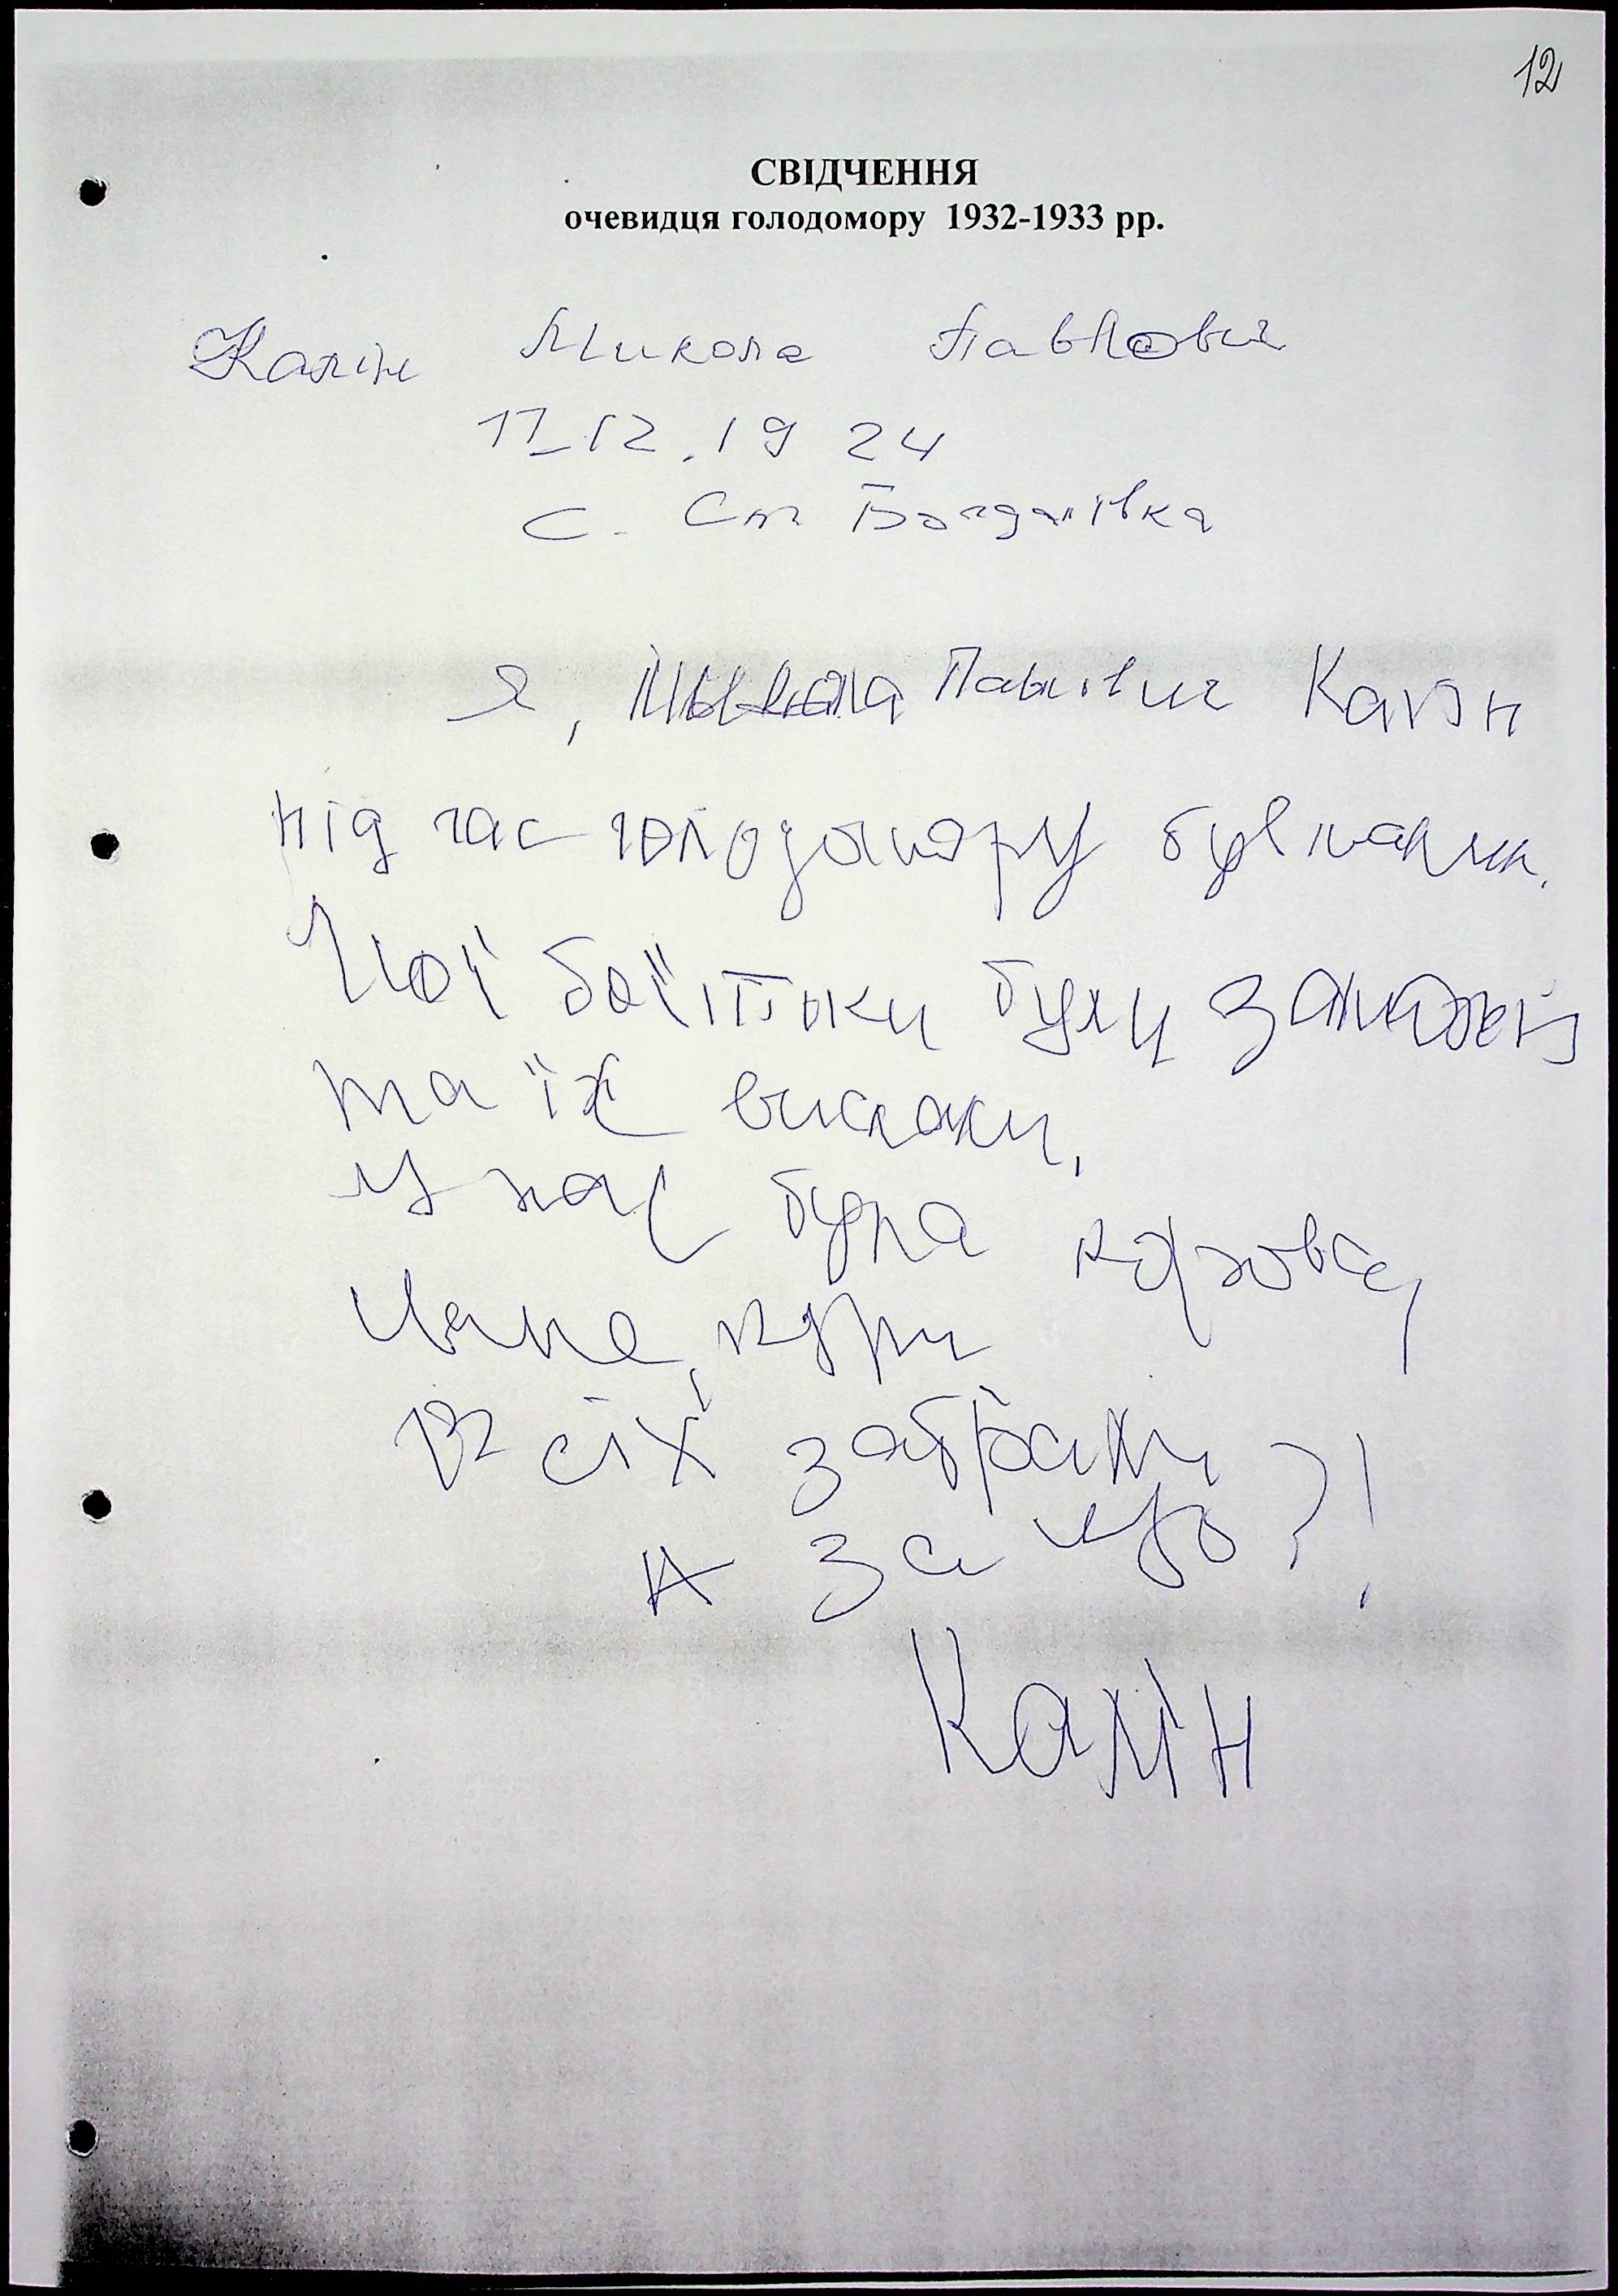 12
СВІДЧЕННЯ
очевидця голодомору 1932-1933 рр.
Калін Микола Павлович
17.12.1924
с. Ст Богданівка
Я, Микола Павлович Калін
під час голодомору був малим.
Мої баїтьки були заможні
та їх вислали,
У нас була корова,
кури
Всіх забрали
А за що?!
Калін